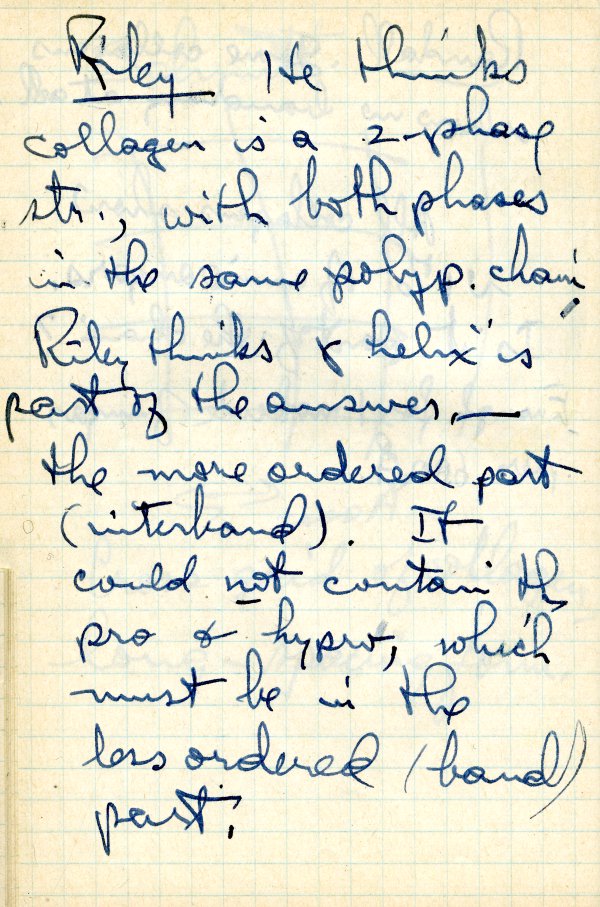 Riley He thinks
collagen is a 2-phase
str., with both phases
in the same polyp. chain.
Riley thinks γ helix is
part of the answer, —
the more ordered part
(interband). It
could not contain the
pro & hypro, which
must be in the
less ordered (band)
part.